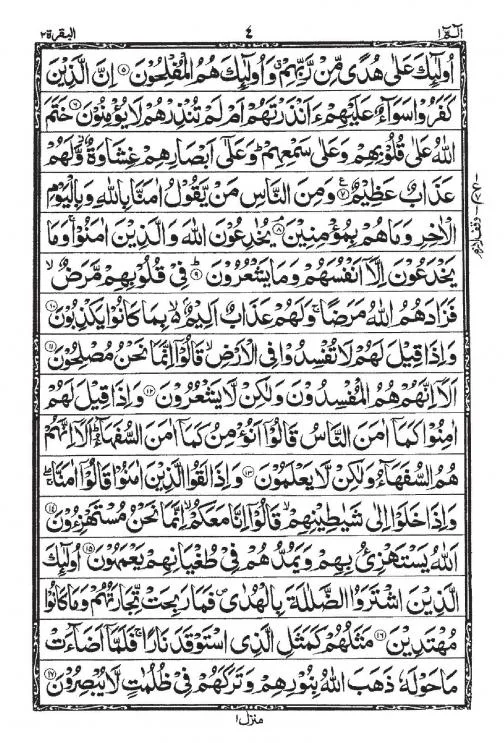 الٓمّٓ ١
٤
البقرة ٢
اُولٰٓئِكَ عَلٰى هُدًى مِّنْ رَّبِّهِمْ ۗ وَاُولٰٓئِكَ هُمُ الْمُفْلِحُوْنَ ۝۵ اِنَّ الَّذِيْنَ
كَفَرُوْا سَوَآءٌ عَلَيْهِمْ ءَاَنْذَرْتَهُمْ اَمْ لَمْ تُنْذِرْهُمْ لَا يُؤْمِنُوْنَ ۝۶ خَتَمَ
اللّٰهُ عَلٰى قُلُوْبِهِمْ وَعَلٰى سَمْعِهِمْ ؕ وَعَلٰٓى اَبْصَارِهِمْ غِشَاوَةٌ ؗ وَّلَهُمْ
عَذَابٌ عَظِيْمٌ ۝۷ وَمِنَ النَّاسِ مَنْ يَّقُوْلُ اٰمَنَّا بِاللّٰهِ وَبِالْيَوْمِ
الْاٰخِرِ وَمَا هُمْ بِمُؤْمِنِيْنَ ۝۸ يُخٰدِعُوْنَ اللّٰهَ وَالَّذِيْنَ اٰمَنُوْا ۚ وَمَا
يَخْدَعُوْنَ اِلَّآ اَنْفُسَهُمْ وَمَا يَشْعُرُوْنَ ۝۹ فِيْ قُلُوْبِهِمْ مَّرَضٌ ۙ
فَزَادَهُمُ اللّٰهُ مَرَضًا ۚ وَلَهُمْ عَذَابٌ اَلِيْمٌۢ ۙ بِمَا كَانُوْا يَكْذِبُوْنَ ۝۱۰
وَاِذَا قِيْلَ لَهُمْ لَا تُفْسِدُوْا فِى الْاَرْضِ ۙ قَالُوْٓا اِنَّمَا نَحْنُ مُصْلِحُوْنَ ۝۱۱
اَلَآ اِنَّهُمْ هُمُ الْمُفْسِدُوْنَ وَلٰكِنْ لَّا يَشْعُرُوْنَ ۝۱۲ وَاِذَا قِيْلَ لَهُمْ
اٰمِنُوْا كَمَآ اٰمَنَ النَّاسُ قَالُوْٓا اَنُؤْمِنُ كَمَآ اٰمَنَ السُّفَهَآءُ ؕ اَلَآ اِنَّهُمْ
هُمُ السُّفَهَآءُ وَلٰكِنْ لَّا يَعْلَمُوْنَ ۝۱۳ وَاِذَا لَقُوا الَّذِيْنَ اٰمَنُوْا قَالُوْٓا اٰمَنَّا ۖۚ
وَاِذَا خَلَوْا اِلٰى شَيٰطِيْنِهِمْ ۙ قَالُوْٓا اِنَّا مَعَكُمْ ۙ اِنَّمَا نَحْنُ مُسْتَهْزِءُوْنَ ۝۱۴
اَللّٰهُ يَسْتَهْزِئُ بِهِمْ وَيَمُدُّهُمْ فِيْ طُغْيَانِهِمْ يَعْمَهُوْنَ ۝۱۵ اُولٰٓئِكَ
الَّذِيْنَ اشْتَرَوُا الضَّلٰلَةَ بِالْهُدٰى ۪ فَمَا رَبِحَتْ تِّجَارَتُهُمْ وَمَا كَانُوْا
مُهْتَدِيْنَ ۝۱۶ مَثَلُهُمْ كَمَثَلِ الَّذِى اسْتَوْقَدَ نَارًا ۚ فَلَمَّآ اَضَآءَتْ
مَا حَوْلَهٗ ذَهَبَ اللّٰهُ بِنُوْرِهِمْ وَتَرَكَهُمْ فِيْ ظُلُمٰتٍ لَّا يُبْصِرُوْنَ ۝۱۷
منزل ١